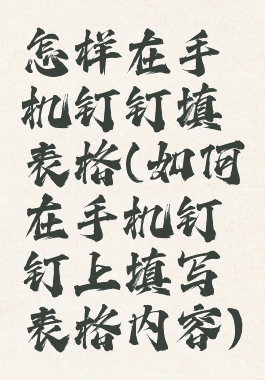 怎样在手
机钉钉填
表格(如何
在手机钉
钉上填写
表格内容)